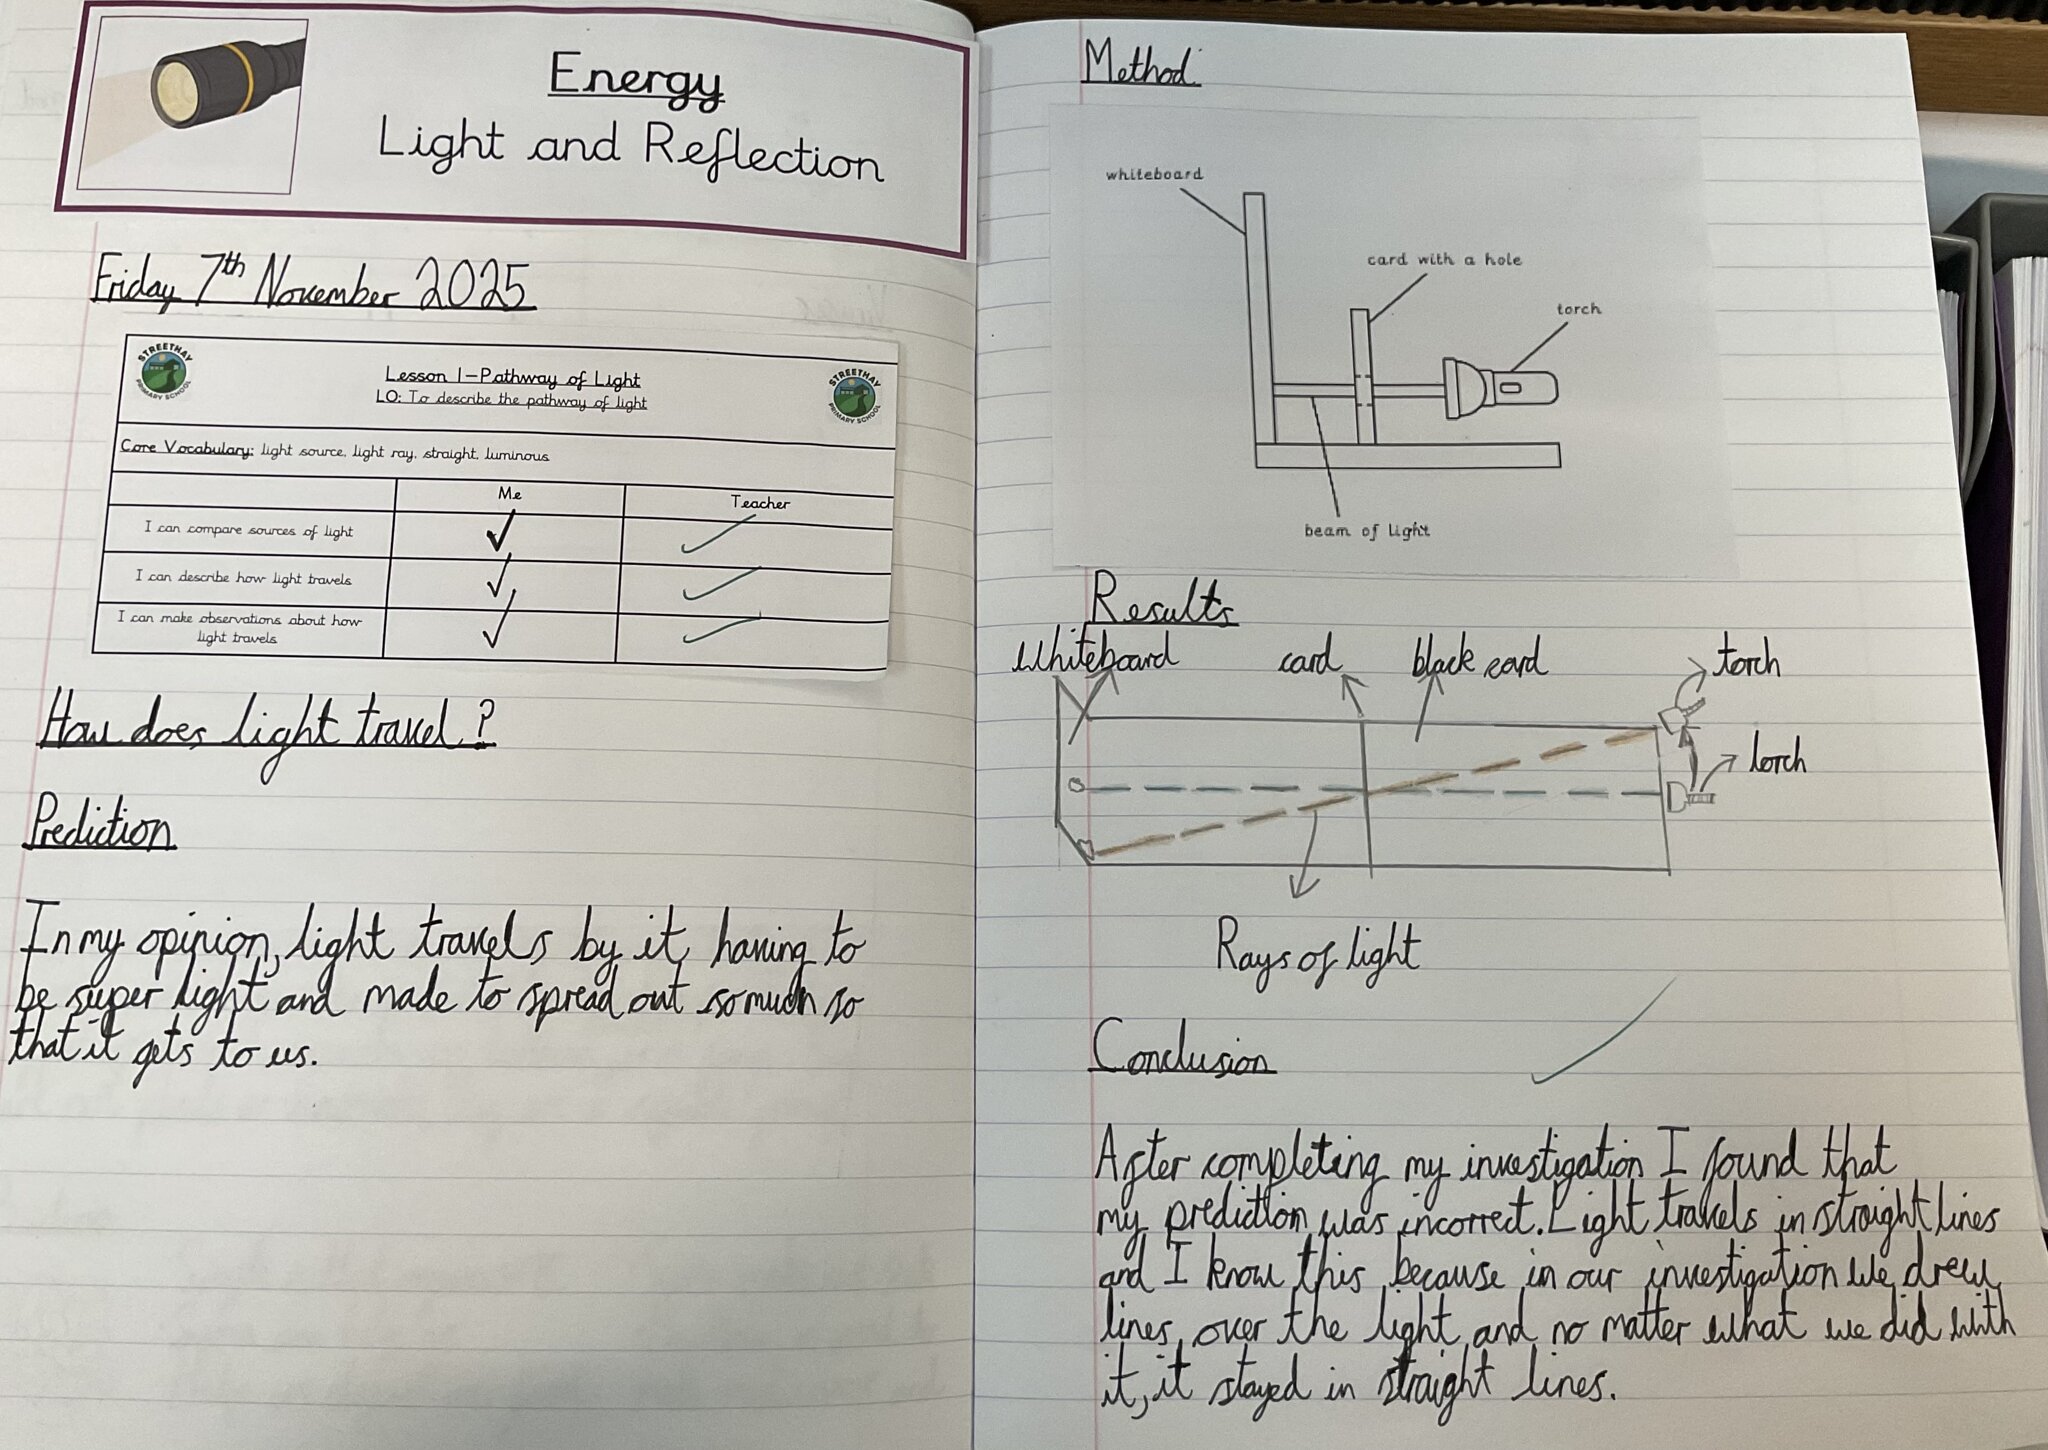 Energy
Light and Reflection
Friday 7th November 2025
STREETHAY
PRIMARY SCHOOL
Lesson 1-Pathway of Light
LO: To describe the pathway of light
STREETHAY
PRIMARY SCHOOL
Core Vocabulary: light source, light ray, straight, luminous
Me
Teacher
I can compare sources of light
I can describe how light travels
I can make observations about how
light travels
How does light travel?
Prediction
In my opinion, light travels by it having to
be super light and made to spread out so much so
that it gets to us.
Method
whiteboard
card with a hole
torch
beam of light
Results
whiteboard
card
black card
torch
torch
Rays of light
Conclusion
After completing my investigation I found that
my prediction was incorrect. Light travels in straight lines
and I know this because in our investigation we drew
lines over the light and no matter what we did with
it, it stayed in straight lines.